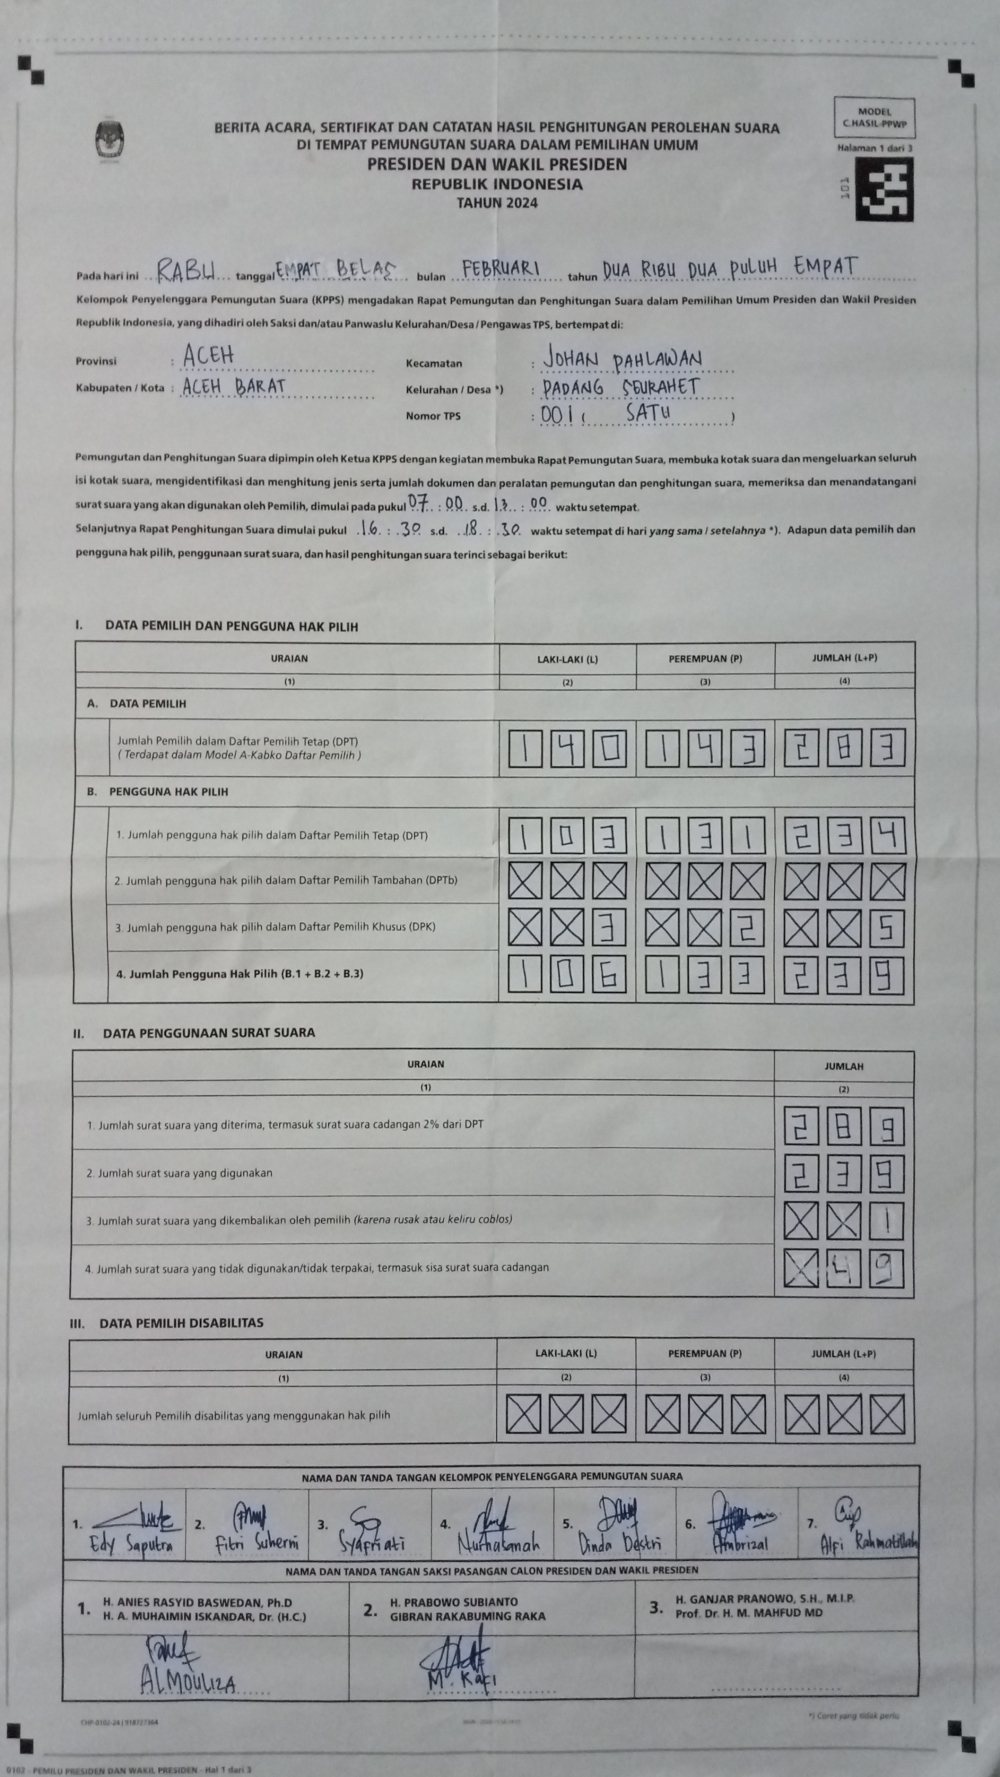 MODEL
C.HASIL-PPWP
Halaman 1 dari 3
101
BERITA ACARA, SERTIFIKAT DAN CATATAN HASIL PENGHITUNGAN PEROLEHAN SUARA
DI TEMPAT PEMUNGUTAN SUARA DALAM PEMILIHAN UMUM
PRESIDEN DAN WAKIL PRESIDEN
REPUBLIK INDONESIA
TAHUN 2024
Pada hari ini RABU tanggal EMPAT BELAS bulan FEBRUARI tahun DUA RIBU DUA PULUH EMPAT
Kelompok Penyelenggara Pemungutan Suara (KPPS) mengadakan Rapat Pemungutan dan Penghitungan Suara dalam Pemilihan Umum Presiden dan Wakil Presiden
Republik Indonesia, yang dihadiri oleh Saksi dan/atau Panwaslu Kelurahan/Desa / Pengawas TPS, bertempat di:
Provinsi : ACEH Kecamatan : JOHAN PAHLAWAN
Kabupaten / Kota : ACEH BARAT Kelurahan / Desa *) : PADANG SEURAHET
Nomor TPS : 001 ( SATU )
Pemungutan dan Penghitungan Suara dipimpin oleh Ketua KPPS dengan kegiatan membuka Rapat Pemungutan Suara, membuka kotak suara dan mengeluarkan seluruh
isi kotak suara, mengidentifikasi dan menghitung jenis serta jumlah dokumen dan peralatan pemungutan dan penghitungan suara, memeriksa dan menandatangani
surat suara yang akan digunakan oleh Pemilih, dimulai pada pukul 07 : 00 s.d. 13 : 00 waktu setempat.
Selanjutnya Rapat Penghitungan Suara dimulai pukul 16 : 30 s.d. 18 : 30 waktu setempat di hari yang sama / setelahnya *). Adapun data pemilih dan
pengguna hak pilih, penggunaan surat suara, dan hasil penghitungan suara terinci sebagai berikut:
I. DATA PEMILIH DAN PENGGUNA HAK PILIH
URAIAN LAKI-LAKI (L) PEREMPUAN (P) JUMLAH (L+P)
(1) (2) (3) (4)
A. DATA PEMILIH
Jumlah Pemilih dalam Daftar Pemilih Tetap (DPT) 1 4 0 1 4 3 2 8 3
( Terdapat dalam Model A-Kabko Daftar Pemilih )
B. PENGGUNA HAK PILIH
1. Jumlah pengguna hak pilih dalam Daftar Pemilih Tetap (DPT) 1 0 3 1 3 1 2 3 4
2. Jumlah pengguna hak pilih dalam Daftar Pemilih Tambahan (DPTb) X X X X X X X X X
3. Jumlah pengguna hak pilih dalam Daftar Pemilih Khusus (DPK) X X 3 X X 2 X X 5
4. Jumlah Pengguna Hak Pilih (B.1 + B.2 + B.3) 1 0 6 1 3 3 2 3 9
II. DATA PENGGUNAAN SURAT SUARA
URAIAN JUMLAH
(1) (2)
1. Jumlah surat suara yang diterima, termasuk surat suara cadangan 2% dari DPT 2 8 9
2. Jumlah surat suara yang digunakan 2 3 9
3. Jumlah surat suara yang dikembalikan oleh pemilih (karena rusak atau keliru coblos) X X 1
4. Jumlah surat suara yang tidak digunakan/tidak terpakai, termasuk sisa surat suara cadangan X 4 9
III. DATA PEMILIH DISABILITAS
URAIAN LAKI-LAKI (L) PEREMPUAN (P) JUMLAH (L+P)
(1) (2) (3) (4)
Jumlah seluruh Pemilih disabilitas yang menggunakan hak pilih X X X X X X X X X
NAMA DAN TANDA TANGAN KELOMPOK PENYELENGGARA PEMUNGUTAN SUARA
1. 2. 3. 4. 5. 6. 7.
Edy Saputra Fitri Suherni Syafriati Nurhasanah Dinda Destri Ambrizal Alfi Rahmatillah
NAMA DAN TANDA TANGAN SAKSI PASANGAN CALON PRESIDEN DAN WAKIL PRESIDEN
1. H. ANIES RASYID BASWEDAN, Ph.D
H. A. MUHAIMIN ISKANDAR, Dr. (H.C.)
2. H. PRABOWO SUBIANTO
GIBRAN RAKABUMING RAKA
3. H. GANJAR PRANOWO, S.H., M.I.P.
Prof. Dr. H. M. MAHFUD MD
ALMOULIZA M. Kafi
*) Coret yang tidak perlu
0102 - PEMILU PRESIDEN DAN WAKIL PRESIDEN - Hal 1 dari 3